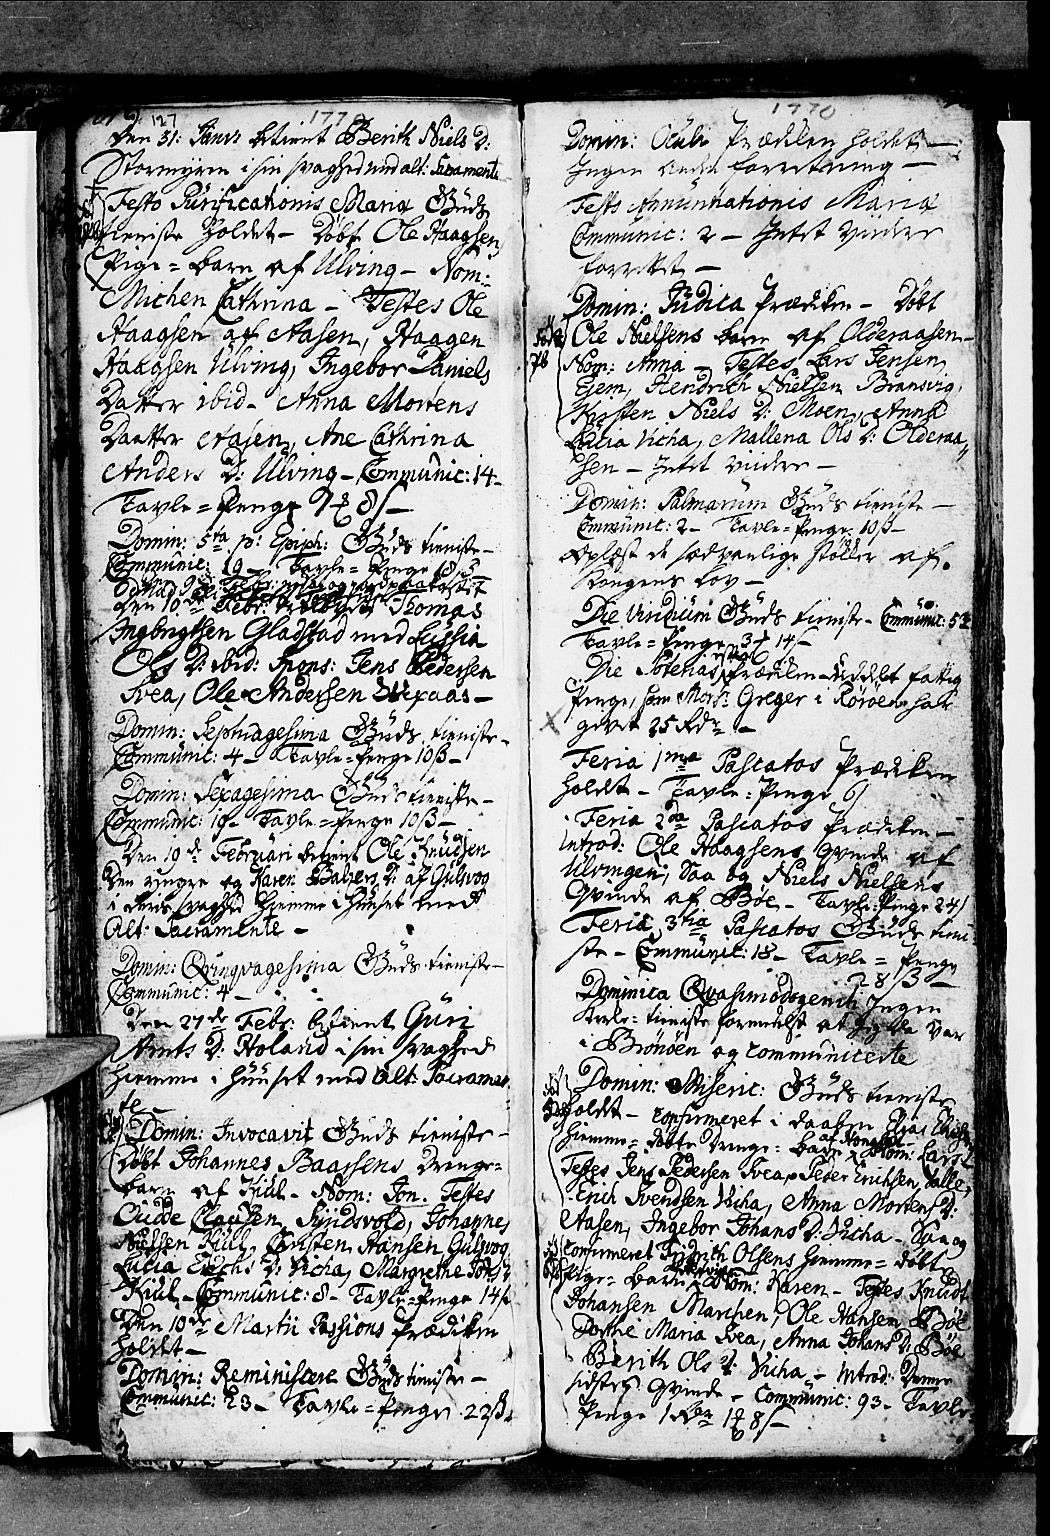 127
1770
Den 31: Janvr betient Berith Niels D:
Stormyren i sin svaghed med alt: Sacramente
Festo Purificationis Mariæ Guds
tieniste holdet – Døbt Ole Haagsens
Pige = barn af Ulving – Nom:
Michen Cathrina – Testes Ole
Haagsen af Aasen, Haagen
Haagsen Ulving, Ingebor Daniels
Datter ibid – Anna Mortens
Daatter Aasen, Ane Cathrina
Anders D: Ulving – Communic: 14 –
Tavle = Penge
Domin: 5ta p: Epiph: Guds tieniste –
Communic: 19 – Tavle = Penge
Den 10de Febr: Thomas
Ingbrigtsen Gladstad med Lussia
Ols D: ibid: Spons: Jens Pedersen
Svea, Ole Andersen
Domin: Septuagesima Guds tieniste –
Communic: 4 – Tavle = Penge 10 β –
Domin: Sexagesima Guds tieniste –
Communic: 19 – Tavle = Penge 10 β –
Den 19de Februari betient Ole Knudsen
den yngre og Karen D: af Gulsvog
i deres svaghed hiemme i Huuset med
Alt: Sacramente –
Domin: Qvinqvagesima Guds tieniste –
Communic: 4 –
Den 27de Febr: betient Guri
Arnts D: Holand i sin svaghed
hiemme i huuset med Alt: Sacramen
te –
Domin: Invocavit Guds tieniste –
Døbt Johannes Baarsens Drenge =
barn af Kiul – Nom: Jon. Testes
Oudde Clausen, Johannes
Nielsen Kiul, Christen Hansen Gulsvog,
Lucia Erichs D: Vicha, Margrethe
Kiul – Communic: 8 – Tavle = Penge 14 β
Den 10de Martii Passions Prædiken
holdet –
Domin: Reminiscere Guds tieniste –
Communic: 23 – Tavle = Penge 22 β
1770
Domin: Oculi Prædiken holdet –
Ingen anden forretning –
Festo Annuntiationis Mariæ
Communic: 2 – Intet videre
forrettet –
Domin: Judica Prædiken – Døbt
Ole Nielsens barn af Olderaasen –
Nom: Anna – Testes Lars Jensen
Hendrich Nielsen Bransvig,
Kirsten Niels D: Moen, Anna
Lucia Vicha, Mallena Ols D: Olderaa
sen – Intet videre –
Domin: Palmarum Guds tieniste –
Communic: 2 – Tavle = Penge 10 β –
Oplæst de sædvanlige stØkker af
Kongens Lov –
Die Viridium Guds tieniste – Communic: 53
Tavle = Penge 14 β –
Die Prædiken – uddeelt fattig
Penge, som Monsr: Greger i Rørøen har
givet 25 Rdr –
Feria 1ma Pascatos Prædiken
holdt – Tavle = Penge 6 β
Feria 2da Pascatos Prædiken –
Introd: Ole Haagsens Qvinde af
Ulvingen, Saa og Niels Nielsens
Qvinde af Bøe – Tavle: Penge 24 β
Feria 3tia Pascatos Guds tieni
ste – Communic: 18 – Tavle = Penge
28 β –
Dominica Qvasimodogeniti Ingen
tieniste formedelst at jeg da var
i Brønøen og communicerte
Domin: Miseric: Guds tieniste
holdt – confirmeret i daaben Elias
hiemme = døbte drenge = barn – Nom: Lars
Testes Jens Pedersen Svea, Peder Erichsen
Erich Svendsen Vicha, Anna Mortens D:
Aasen, Ingebor Johans D: Vicha – Saa og
confirmeret Fridrich Olsens hiemme = døbte
Pige = barn Nom: Karen – Testes Knudt
Johansen Marchen, Ole Hansen Bøe
Dorthe Maria Svea, Anna Johans D: Bøe
Berith Ols D: Vicha – Introd: Denne
sidstes Qvinde – Communic: 93 – Tavle
Penge 1 Rdr